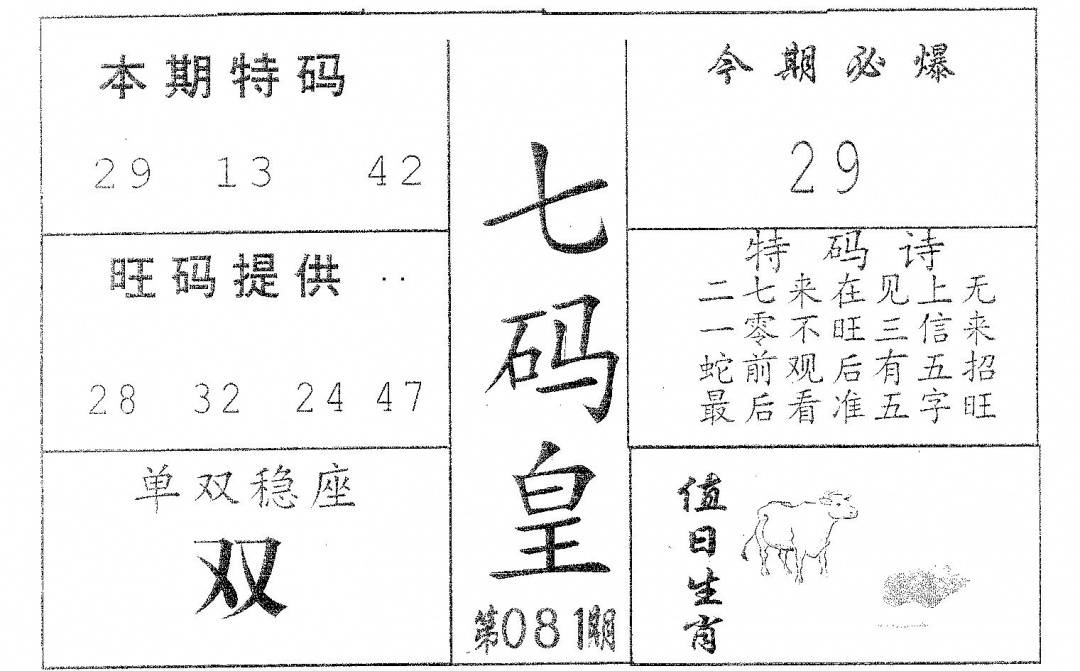 本期特码
29 13 42
旺码提供
28 32 24 47
单双稳座
双
七码皇
第081期
今期必爆
29
特码诗
二七来在见上无
一零不旺三信来
蛇前观后有五招
最后看准五字旺
值日生肖